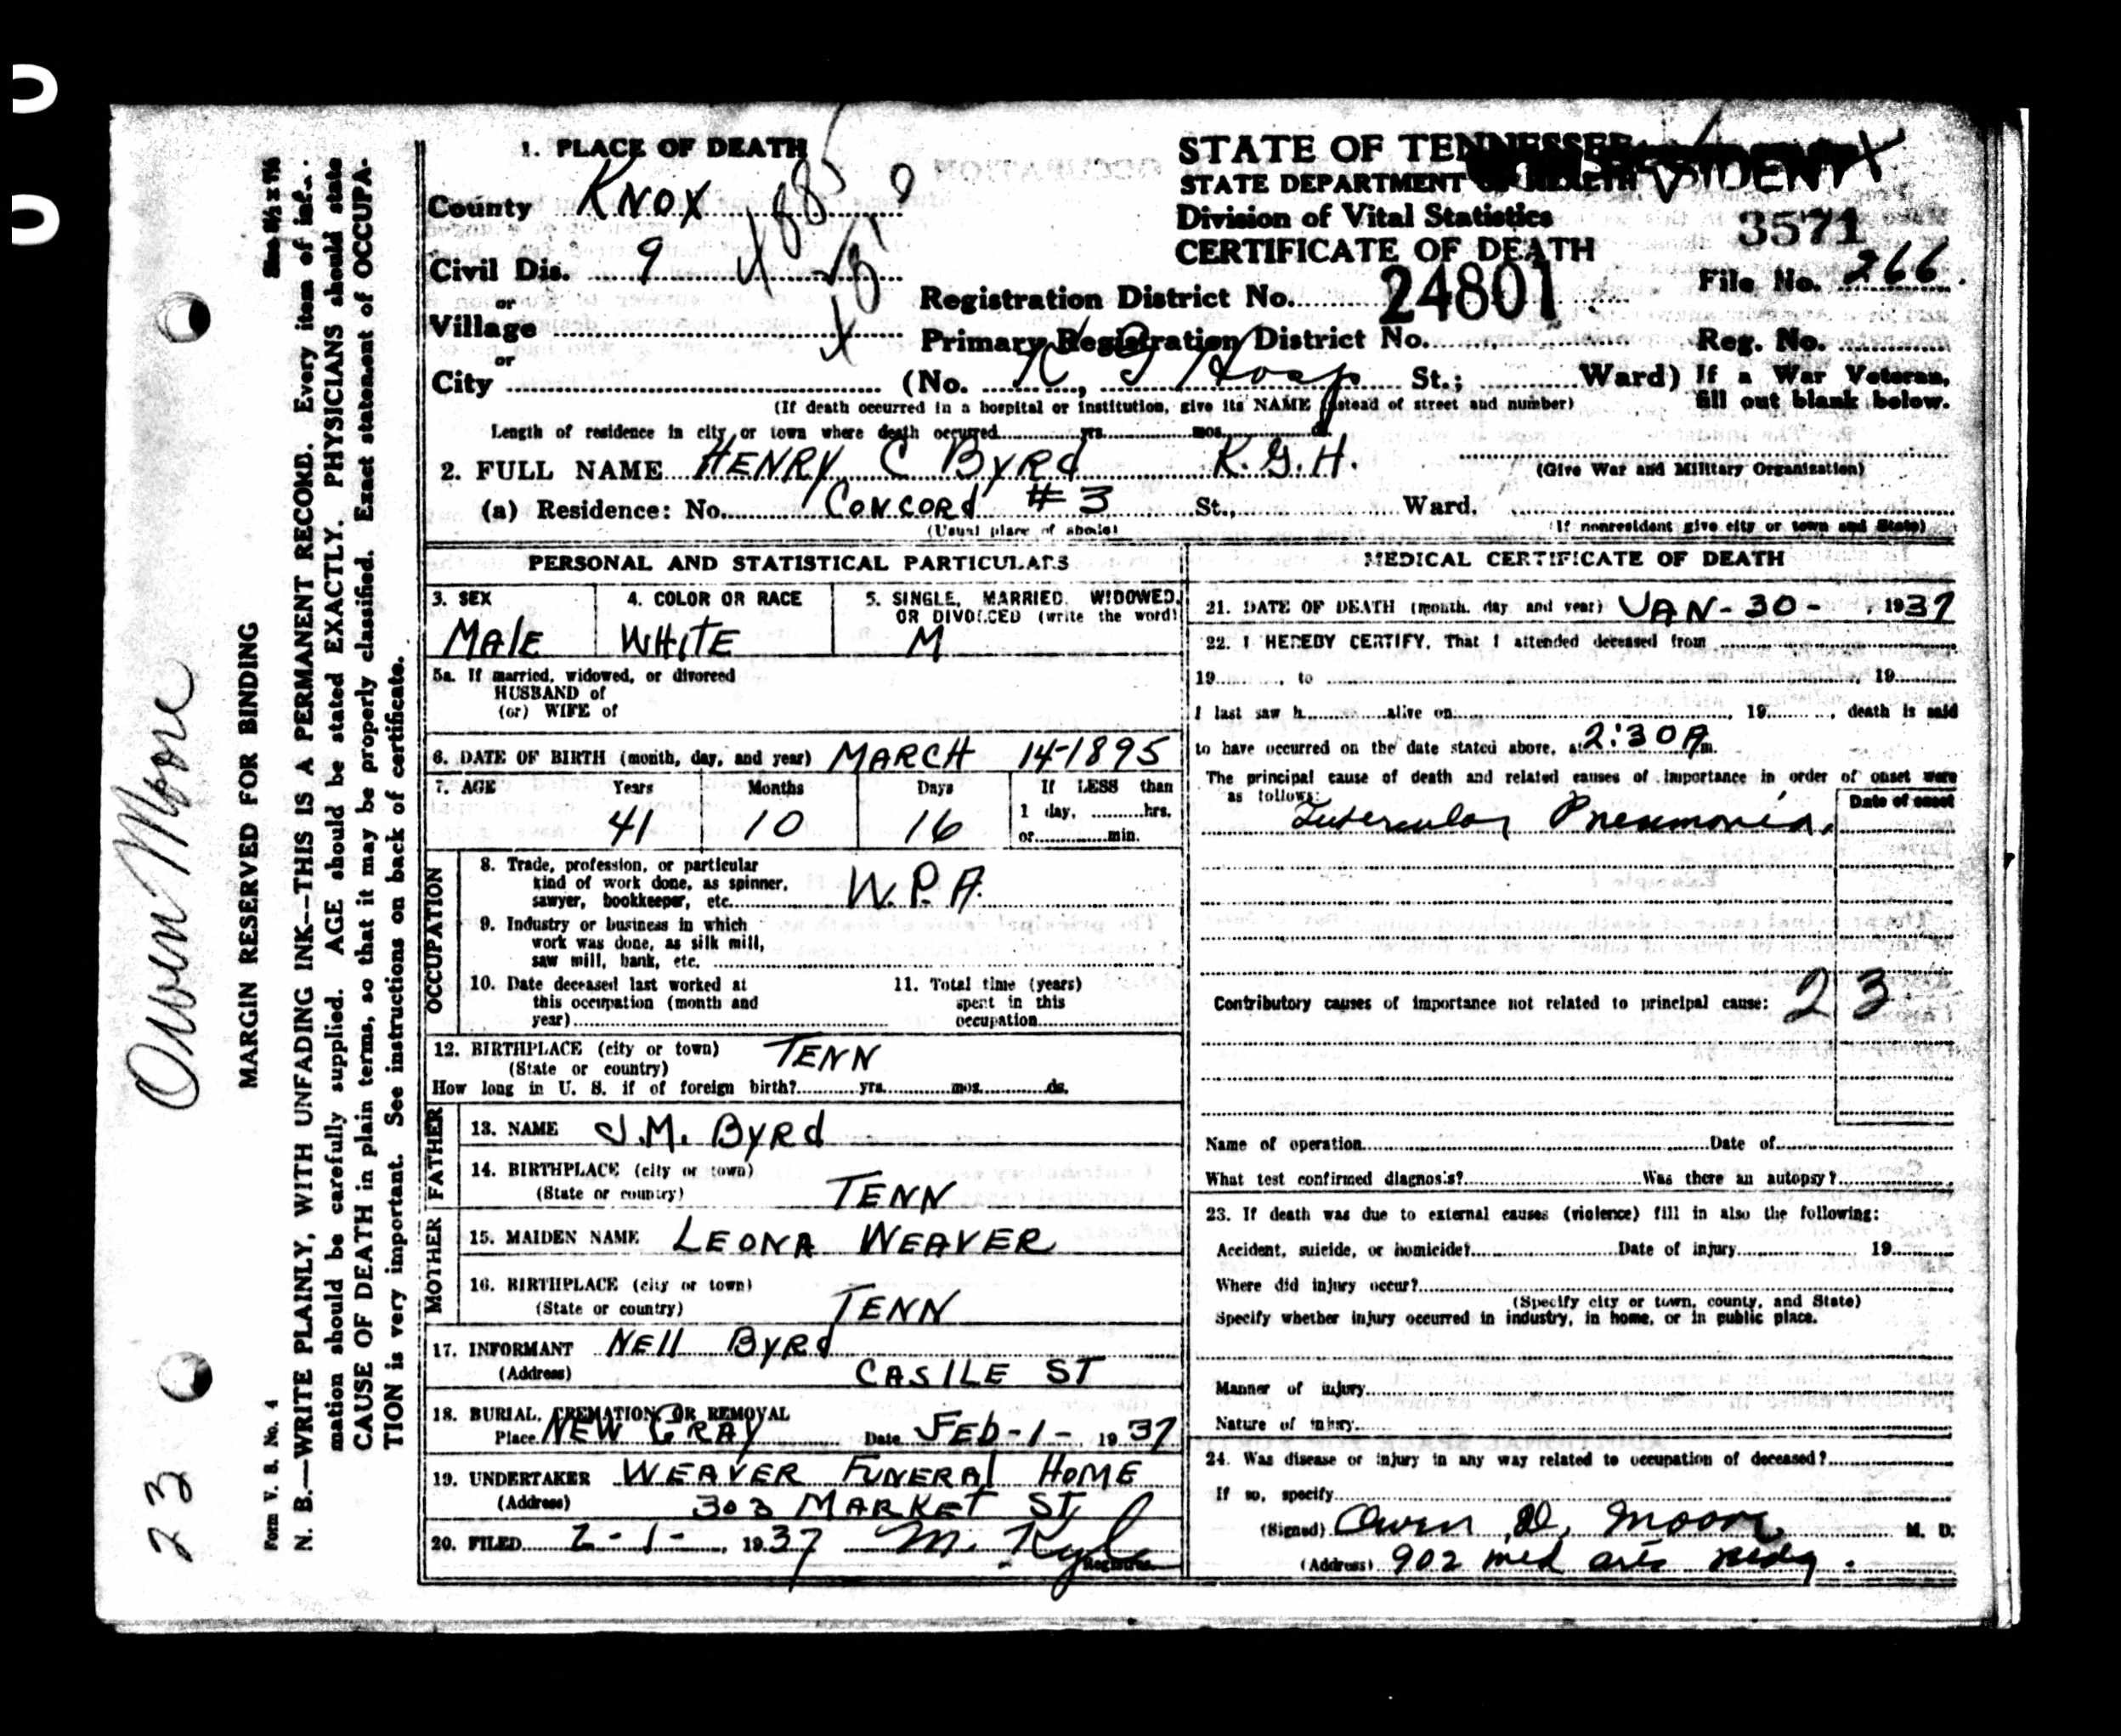 1. PLACE OF DEATH
County KNOX
Civil Dis. 9
or
Village
or
City (No. K G Hosp St.; Ward)
(If death occurred in a hospital or institution, give its NAME instead of street and number)
STATE OF TENNESSEE
STATE DEPARTMENT OF HEALTH
Division of Vital Statistics
CERTIFICATE OF DEATH
3571
Registration District No. 24801
File No. 266
Primary Registration District No.
Reg. No.
If a War Veteran,
fill out blank below.
Length of residence in city or town where death occurred yrs. mos. ds.
2. FULL NAME HENRY C BYRd K.G.H.
(Give War and Military Organization)
(a) Residence: No. CONCORd #3 St., Ward.
(Usual place of abode)
(If nonresident give city or town and State)
PERSONAL AND STATISTICAL PARTICULARS
3. SEX
MAlE
4. COLOR OR RACE
WHITE
5. SINGLE, MARRIED, WIDOWED,
OR DIVORCED (write the word)
M
5a. If married, widowed, or divorced
HUSBAND of
(or) WIFE of
6. DATE OF BIRTH (month, day, and year) MARCH 14-1895
7. AGE Years Months Days If LESS than
41 10 16 1 day, hrs.
or min.
OCCUPATION
8. Trade, profession, or particular
kind of work done, as spinner,
sawyer, bookkeeper, etc. W.P.A.
9. Industry or business in which
work was done, as silk mill,
saw mill, bank, etc.
10. Date deceased last worked at
this occupation (month and
year)
11. Total time (years)
spent in this
occupation
12. BIRTHPLACE (city or town) TENN
(State or country)
How long in U. S. if of foreign birth? yrs. mos. ds.
FATHER
13. NAME J.M. BYRd
14. BIRTHPLACE (city or town)
(State or country) TENN
MOTHER
15. MAIDEN NAME LEONA WEAVER
16. BIRTHPLACE (city or town)
(State or country) TENN
17. INFORMANT NEll BYRd
(Address) CASILE ST
18. BURIAL, CREMATION, OR REMOVAL
Place NEW GRAY Date FEb-1- 1937
19. UNDERTAKER WEAVER FUNERAl HOME
(Address) 303 MARKET ST
20. FILED 2-1-, 1937 M. Kyle
Registrar
MEDICAL CERTIFICATE OF DEATH
21. DATE OF DEATH (month, day, and year) JAN-30-, 1937
22. I HEREBY CERTIFY, That I attended deceased from
19 , to , 19
I last saw h alive on , 19 , death is said
to have occurred on the date stated above, at 2:30 A m.
The principal cause of death and related causes of importance in order of onset were
as follows:
Date of onset
Tubercular Pneumonia.
Contributory causes of importance not related to principal cause: 23
Name of operation Date of
What test confirmed diagnosis? Was there an autopsy?
23. If death was due to external causes (violence) fill in also the following:
Accident, suicide, or homicide? Date of injury 19
Where did injury occur?
(Specify city or town, county, and State)
Specify whether injury occurred in industry, in home, or in public place.
Manner of injury
Nature of injury
24. Was disease or injury in any way related to occupation of deceased?
If so, specify
(Signed) Owen D. Moore M. D.
(Address) 902 med arts Bldg.
Owen Moore
23
MARGIN RESERVED FOR BINDING
Form V. S. No. 4
N. B.—WRITE PLAINLY, WITH UNFADING INK—THIS IS A PERMANENT RECORD. Every item of infor-
mation should be carefully supplied. AGE should be stated EXACTLY. PHYSICIANS should state
CAUSE OF DEATH in plain terms, so that it may be properly classified. Exact statement of OCCUPA-
TION is very important. See instructions on back of certificate.